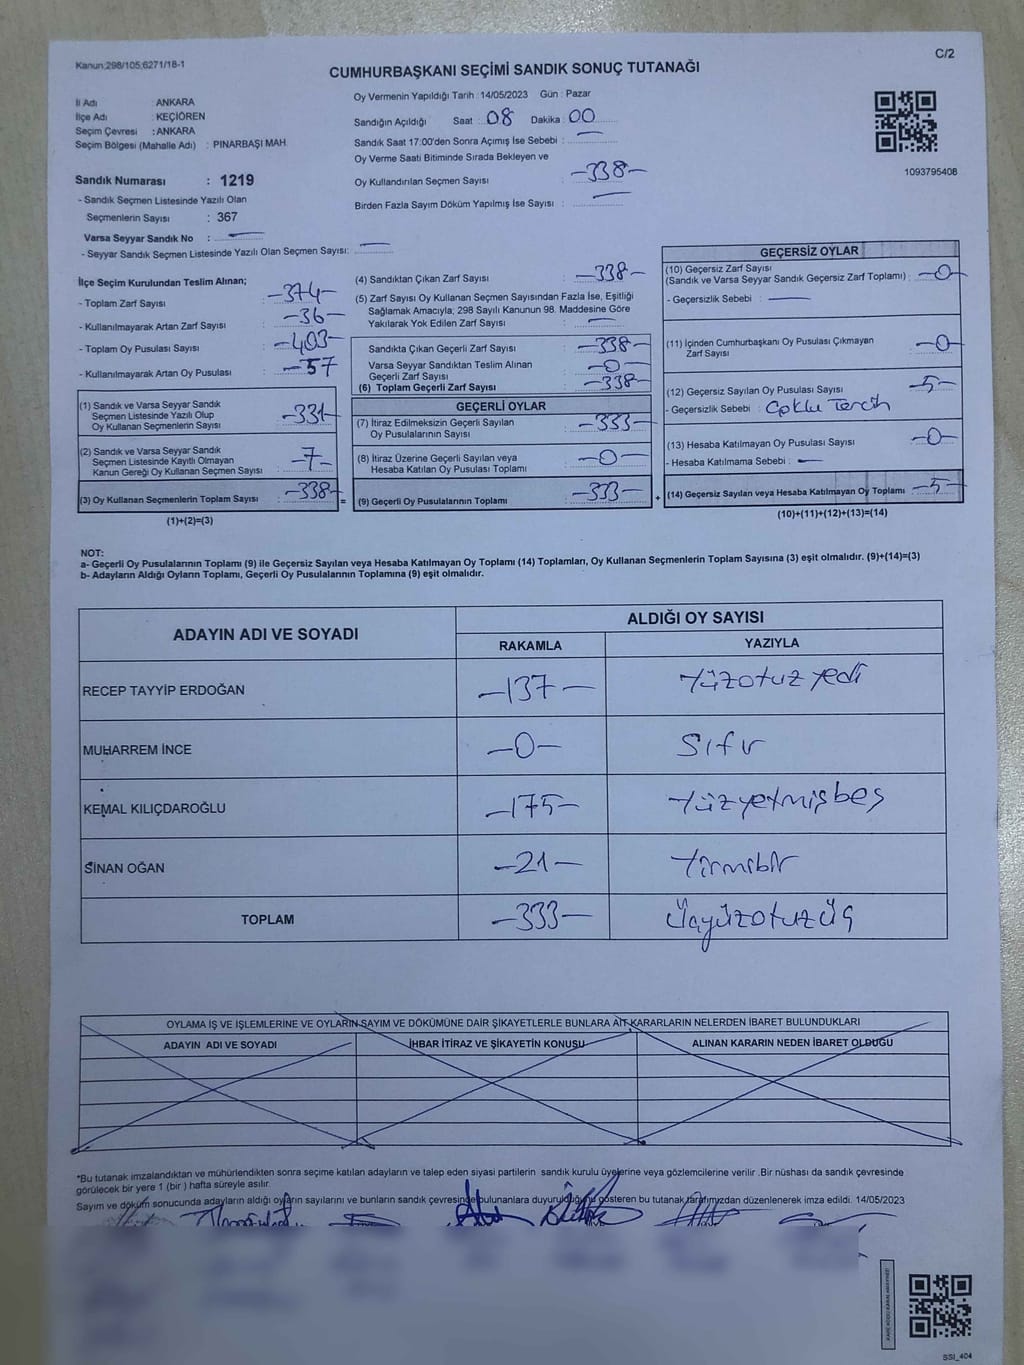 Kanun:298/105;6271/18-1
C/2
CUMHURBAŞKANI SEÇİMİ SANDIK SONUÇ TUTANAĞI
İl Adı : ANKARA
İlçe Adı : KEÇİÖREN
Seçim Çevresi : ANKARA
Seçim Bölgesi (Mahalle Adı) : PINARBAŞI MAH.
Sandık Numarası : 1219
- Sandık Seçmen Listesinde Yazılı Olan
Seçmenlerin Sayısı : 367
Varsa Seyyar Sandık No : —
- Seyyar Sandık Seçmen Listesinde Yazılı Olan Seçmen Sayısı: —
Oy Vermenin Yapıldığı Tarih : 14/05/2023 Gün : Pazar
Sandığın Açıldığı Saat : 08 Dakika : 00
Sandık Saat 17:00'den Sonra Açımış İse Sebebi : —
Oy Verme Saati Bitiminde Sırada Bekleyen ve
Oy Kullandırılan Seçmen Sayısı : —338—
Birden Fazla Sayım Döküm Yapılmış İse Sayısı : —
1093795408
İlçe Seçim Kurulundan Teslim Alınan;
- Toplam Zarf Sayısı : —374—
- Kullanılmayarak Artan Zarf Sayısı : —36—
- Toplam Oy Pusulası Sayısı : —403—
- Kullanılmayarak Artan Oy Pusulası : —57
(1) Sandık ve Varsa Seyyar Sandık
Seçmen Listesinde Yazılı Olup
Oy Kullanan Seçmenlerin Sayısı : —331—
(2) Sandık ve Varsa Seyyar Sandık
Seçmen Listesinde Kayıtlı Olmayan
Kanun Gereği Oy Kullanan Seçmen Sayısı : —7—
(3) Oy Kullanan Seçmenlerin Toplam Sayısı : —338—
(1)+(2)=(3)
(4) Sandıktan Çıkan Zarf Sayısı : —338—
(5) Zarf Sayısı Oy Kullanan Seçmen Sayısından Fazla İse, Eşitliği
Sağlamak Amacıyla; 298 Sayılı Kanunun 98. Maddesine Göre
Yakılarak Yok Edilen Zarf Sayısı : —
Sandıkta Çıkan Geçerli Zarf Sayısı : —338—
Varsa Seyyar Sandıktan Teslim Alınan
Geçerli Zarf Sayısı : —0—
(6) Toplam Geçerli Zarf Sayısı : —338—
GEÇERLİ OYLAR
(7) İtiraz Edilmeksizin Geçerli Sayılan
Oy Pusulalarının Sayısı : —333—
(8) İtiraz Üzerine Geçerli Sayılan veya
Hesaba Katılan Oy Pusulası Toplamı : —0—
= (9) Geçerli Oy Pusulalarının Toplamı : —333— +
GEÇERSİZ OYLAR
(10) Geçersiz Zarf Sayısı
(Sandık ve Varsa Seyyar Sandık Geçersiz Zarf Toplamı) : —0—
- Geçersizlik Sebebi : —
(11) İçinden Cumhurbaşkanı Oy Pusulası Çıkmayan
Zarf Sayısı : —0—
(12) Geçersiz Sayılan Oy Pusulası Sayısı : —5—
- Geçersizlik Sebebi : Çoklu Tercih
(13) Hesaba Katılmayan Oy Pusulası Sayısı : —0—
- Hesaba Katılmama Sebebi : —
(14) Geçersiz Sayılan veya Hesaba Katılmayan Oy Toplamı : —5—
(10)+(11)+(12)+(13)=(14)
NOT:
a- Geçerli Oy Pusulalarının Toplamı (9) ile Geçersiz Sayılan veya Hesaba Katılmayan Oy Toplamı (14) Toplamları, Oy Kullanan Seçmenlerin Toplam Sayısına (3) eşit olmalıdır. (9)+(14)=(3)
b- Adayların Aldığı Oyların Toplamı, Geçerli Oy Pusulalarının Toplamına (9) eşit olmalıdır.
ADAYIN ADI VE SOYADI
ALDIĞI OY SAYISI
RAKAMLA YAZIYLA
RECEP TAYYİP ERDOĞAN —137— Yüzotuz yedi
MUHARREM İNCE —0— Sıfır
KEMAL KILIÇDAROĞLU —175— Yüzyetmişbeş
SİNAN OĞAN —21— Yirmibir
TOPLAM —333— Üçyüzotuzüç
OYLAMA İŞ VE İŞLEMLERİNE VE OYLARIN SAYIM VE DÖKÜMÜNE DAİR ŞİKAYETLERLE BUNLARA AİT KARARLARIN NELERDEN İBARET BULUNDUKLARI
ADAYIN ADI VE SOYADI İHBAR İTİRAZ VE ŞİKAYETİN KONUSU ALINAN KARARIN NEDEN İBARET OLDUĞU
*Bu tutanak imzalandıktan ve mühürlendikten sonra seçime katılan adayların ve talep eden siyasi partilerin sandık kurulu üyelerine veya gözlemcilerine verilir .Bir nüshası da sandık çevresinde
görülecek bir yere 1 (bir ) hafta süreyle asılır.
Sayım ve döküm sonucunda adayların aldığı oyların sayılarını ve bunların sandık çevresinde bulunanlara duyurulduğunu gösteren bu tutanak tarafımızdan düzenlenerek imza edildi. 14/05/2023
SSI_404